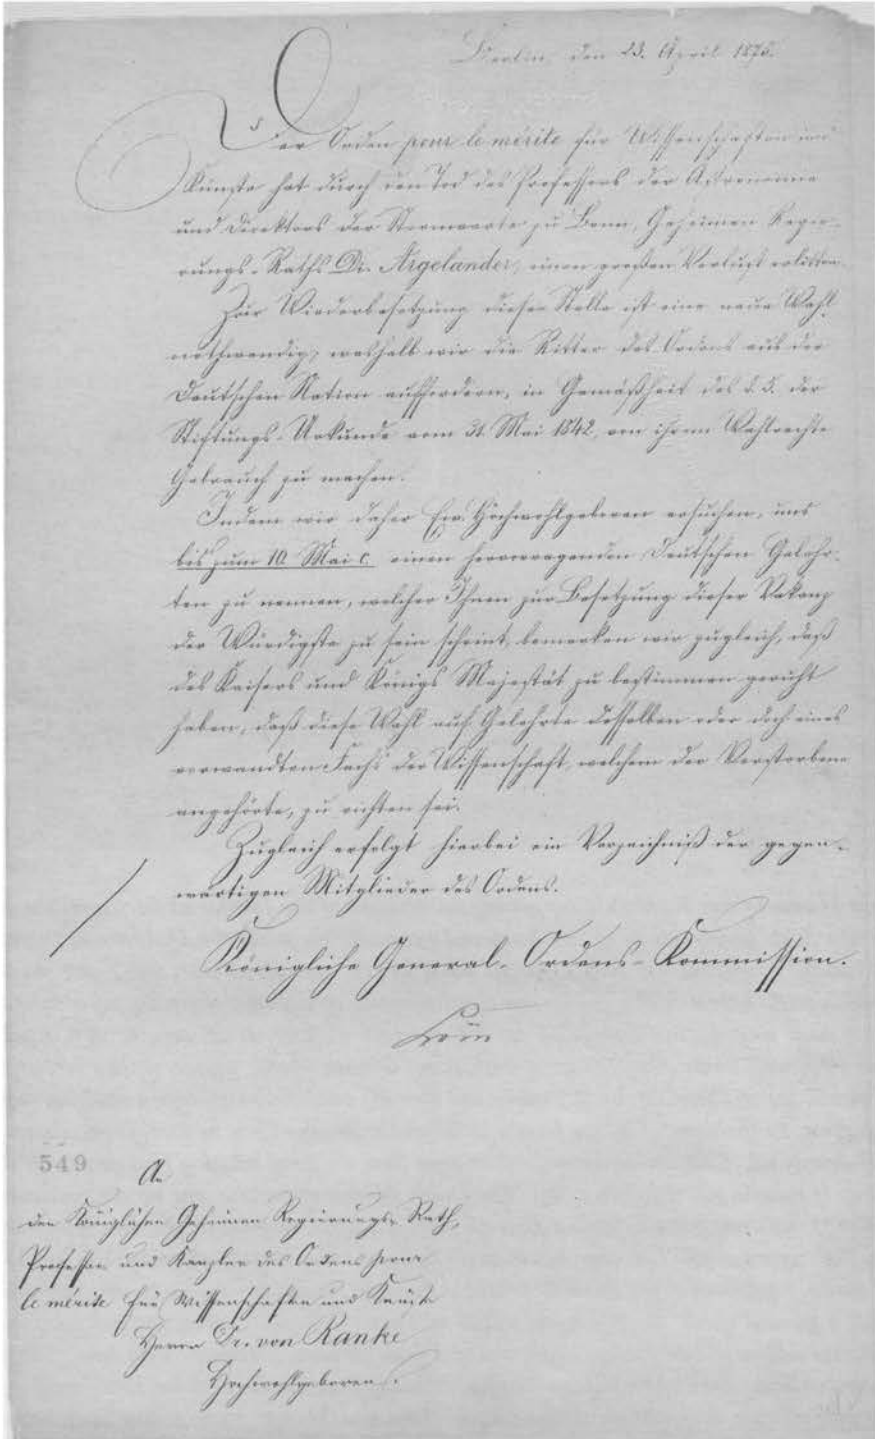 Berlin, den 23. April 1875.
Der Orden pour le mérite für Wissenschaften und
Künste hat durch den Tod des Professors der Astronomie
und Direktors der Sternwarte zu Bonn, Geheimen Regie-
rungs-Raths Dr. Argelander, einen großen Verlust erlitten.
Zur Wiederbesetzung dieser Stelle ist eine neue Wahl
nothwendig, weshalb wir die Ritter des Ordens aus der
Deutschen Nation auffordern, in Gemäßheit des §. 5. der
Stiftungs-Urkunde vom 31. Mai 1842, von ihrem Wahlrechte
Gebrauch zu machen.
Indem wir daher Ew. Hochwohlgeboren ersuchen, uns
bis zum 10 Mai c. einen hervorragenden Deutschen Gelehr-
ten zu nennen, welcher Ihnen zur Besetzung dieser Vakanz
der Würdigste zu sein scheint, bemerken wir zugleich, daß
des Kaisers und Königs Majestät zu bestimmen geruht
haben, daß diese Wahl auf Gelehrte desselben oder doch eines
verwandten Fachs der Wissenschaft, welchem der Verstorbene
angehörte, zu richten sei.
Zugleich erfolgt hierbei ein Verzeichniß der gegen-
wärtigen Mitglieder des Ordens.
Königliche General-Ordens-Kommission.
549
An
den Königlichen Geheimen Regierungs-Rath,
Professor und Kanzler des Ordens pour
le mérite für Wissenschaften und Künste
Herrn Dr. von Ranke
Hochwohlgeboren.